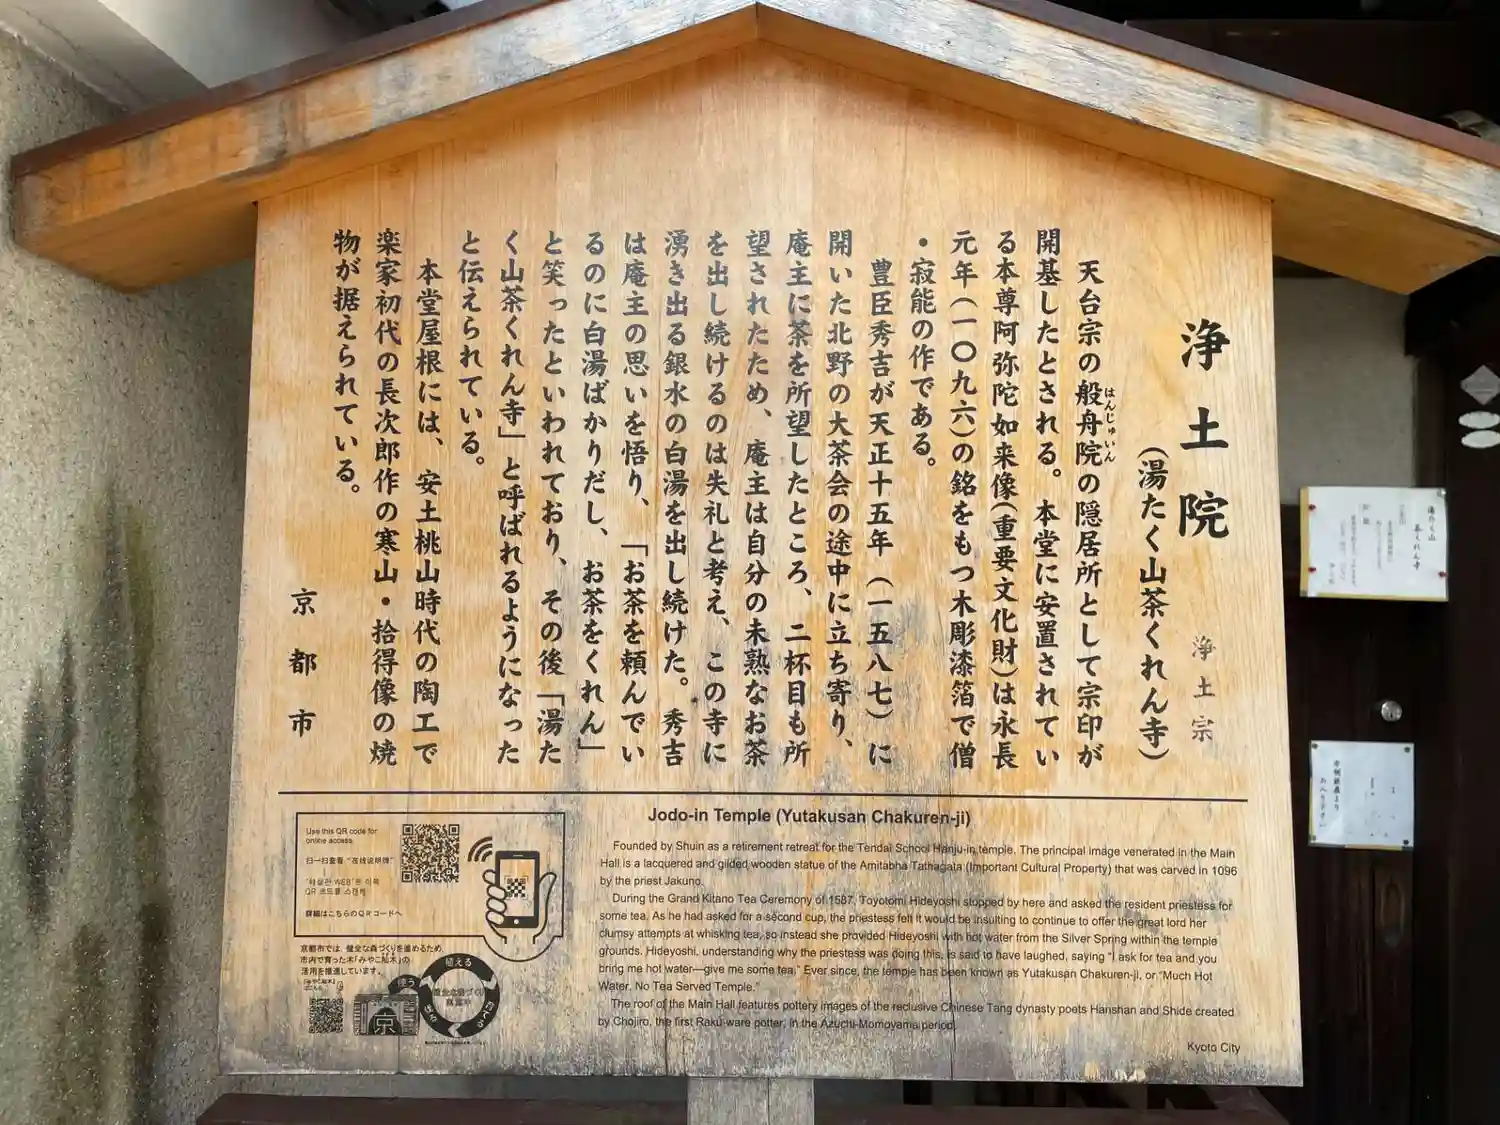 浄土院
浄土宗
（湯たく山茶くれん寺）
はんじゅいん
天台宗の般舟院の隠居所として宗印が
開基したとされる。本堂に安置されてい
る本尊阿弥陀如来像（重要文化財）は永長
元年（一〇九六）の銘をもつ木彫漆箔で僧
・寂能の作である。
豊臣秀吉が天正十五年（一五八七）に
開いた北野の大茶会の途中に立ち寄り、
庵主に茶を所望したところ、二杯目も所
望されたため、庵主は自分の未熟なお茶
を出し続けるのは失礼と考え、この寺に
湧き出る銀水の白湯を出し続けた。秀吉
は庵主の思いを悟り、「お茶を頼んでい
るのに白湯ばかりだし、お茶をくれん」
と笑ったといわれており、その後「湯た
く山茶くれん寺」と呼ばれるようになった
と伝えられている。
本堂屋根には、安土桃山時代の陶工で
楽家初代の長次郎作の寒山・拾得像の焼
物が据えられている。
京都市
Jodo-in Temple (Yutakusan Chakuren-ji)
Founded by Shuin as a retirement retreat for the Tendai School Hanju-in temple. The principal image venerated in the Main
Hall is a lacquered and gilded wooden statue of the Amitabha Tathagata (Important Cultural Property) that was carved in 1096
by the priest Jakuno.
During the Grand Kitano Tea Ceremony of 1587, Toyotomi Hideyoshi stopped by here and asked the resident priestess for
some tea. As he had asked for a second cup, the priestess felt it would be insulting to continue to offer the great lord her
clumsy attempts at whisking tea, so instead she provided Hideyoshi with hot water from the Silver Spring within the temple
grounds. Hideyoshi, understanding why the priestess was doing this, is said to have laughed, saying "I ask for tea and you
bring me hot water—give me some tea." Ever since, the temple has been known as Yutakusan Chakuren-ji, or "Much Hot
Water, No Tea Served Temple."
The roof of the Main Hall features pottery images of the reclusive Chinese Tang dynasty poets Hanshan and Shide created
by Chojiro, the first Raku-ware potter, in the Azuchi-Momoyama period.
Kyoto City
Use this QR code for
online access.
扫一扫查看"在线说明牌"
QR 코드를 스캔해
詳細はこちらのQRコードへ
京都市では、健全な森づくりを進めるため、
市内で育った木「みやこ杣木」の
活用を推進しています。
植える
使う
京
湯たく山
茶くれん寺